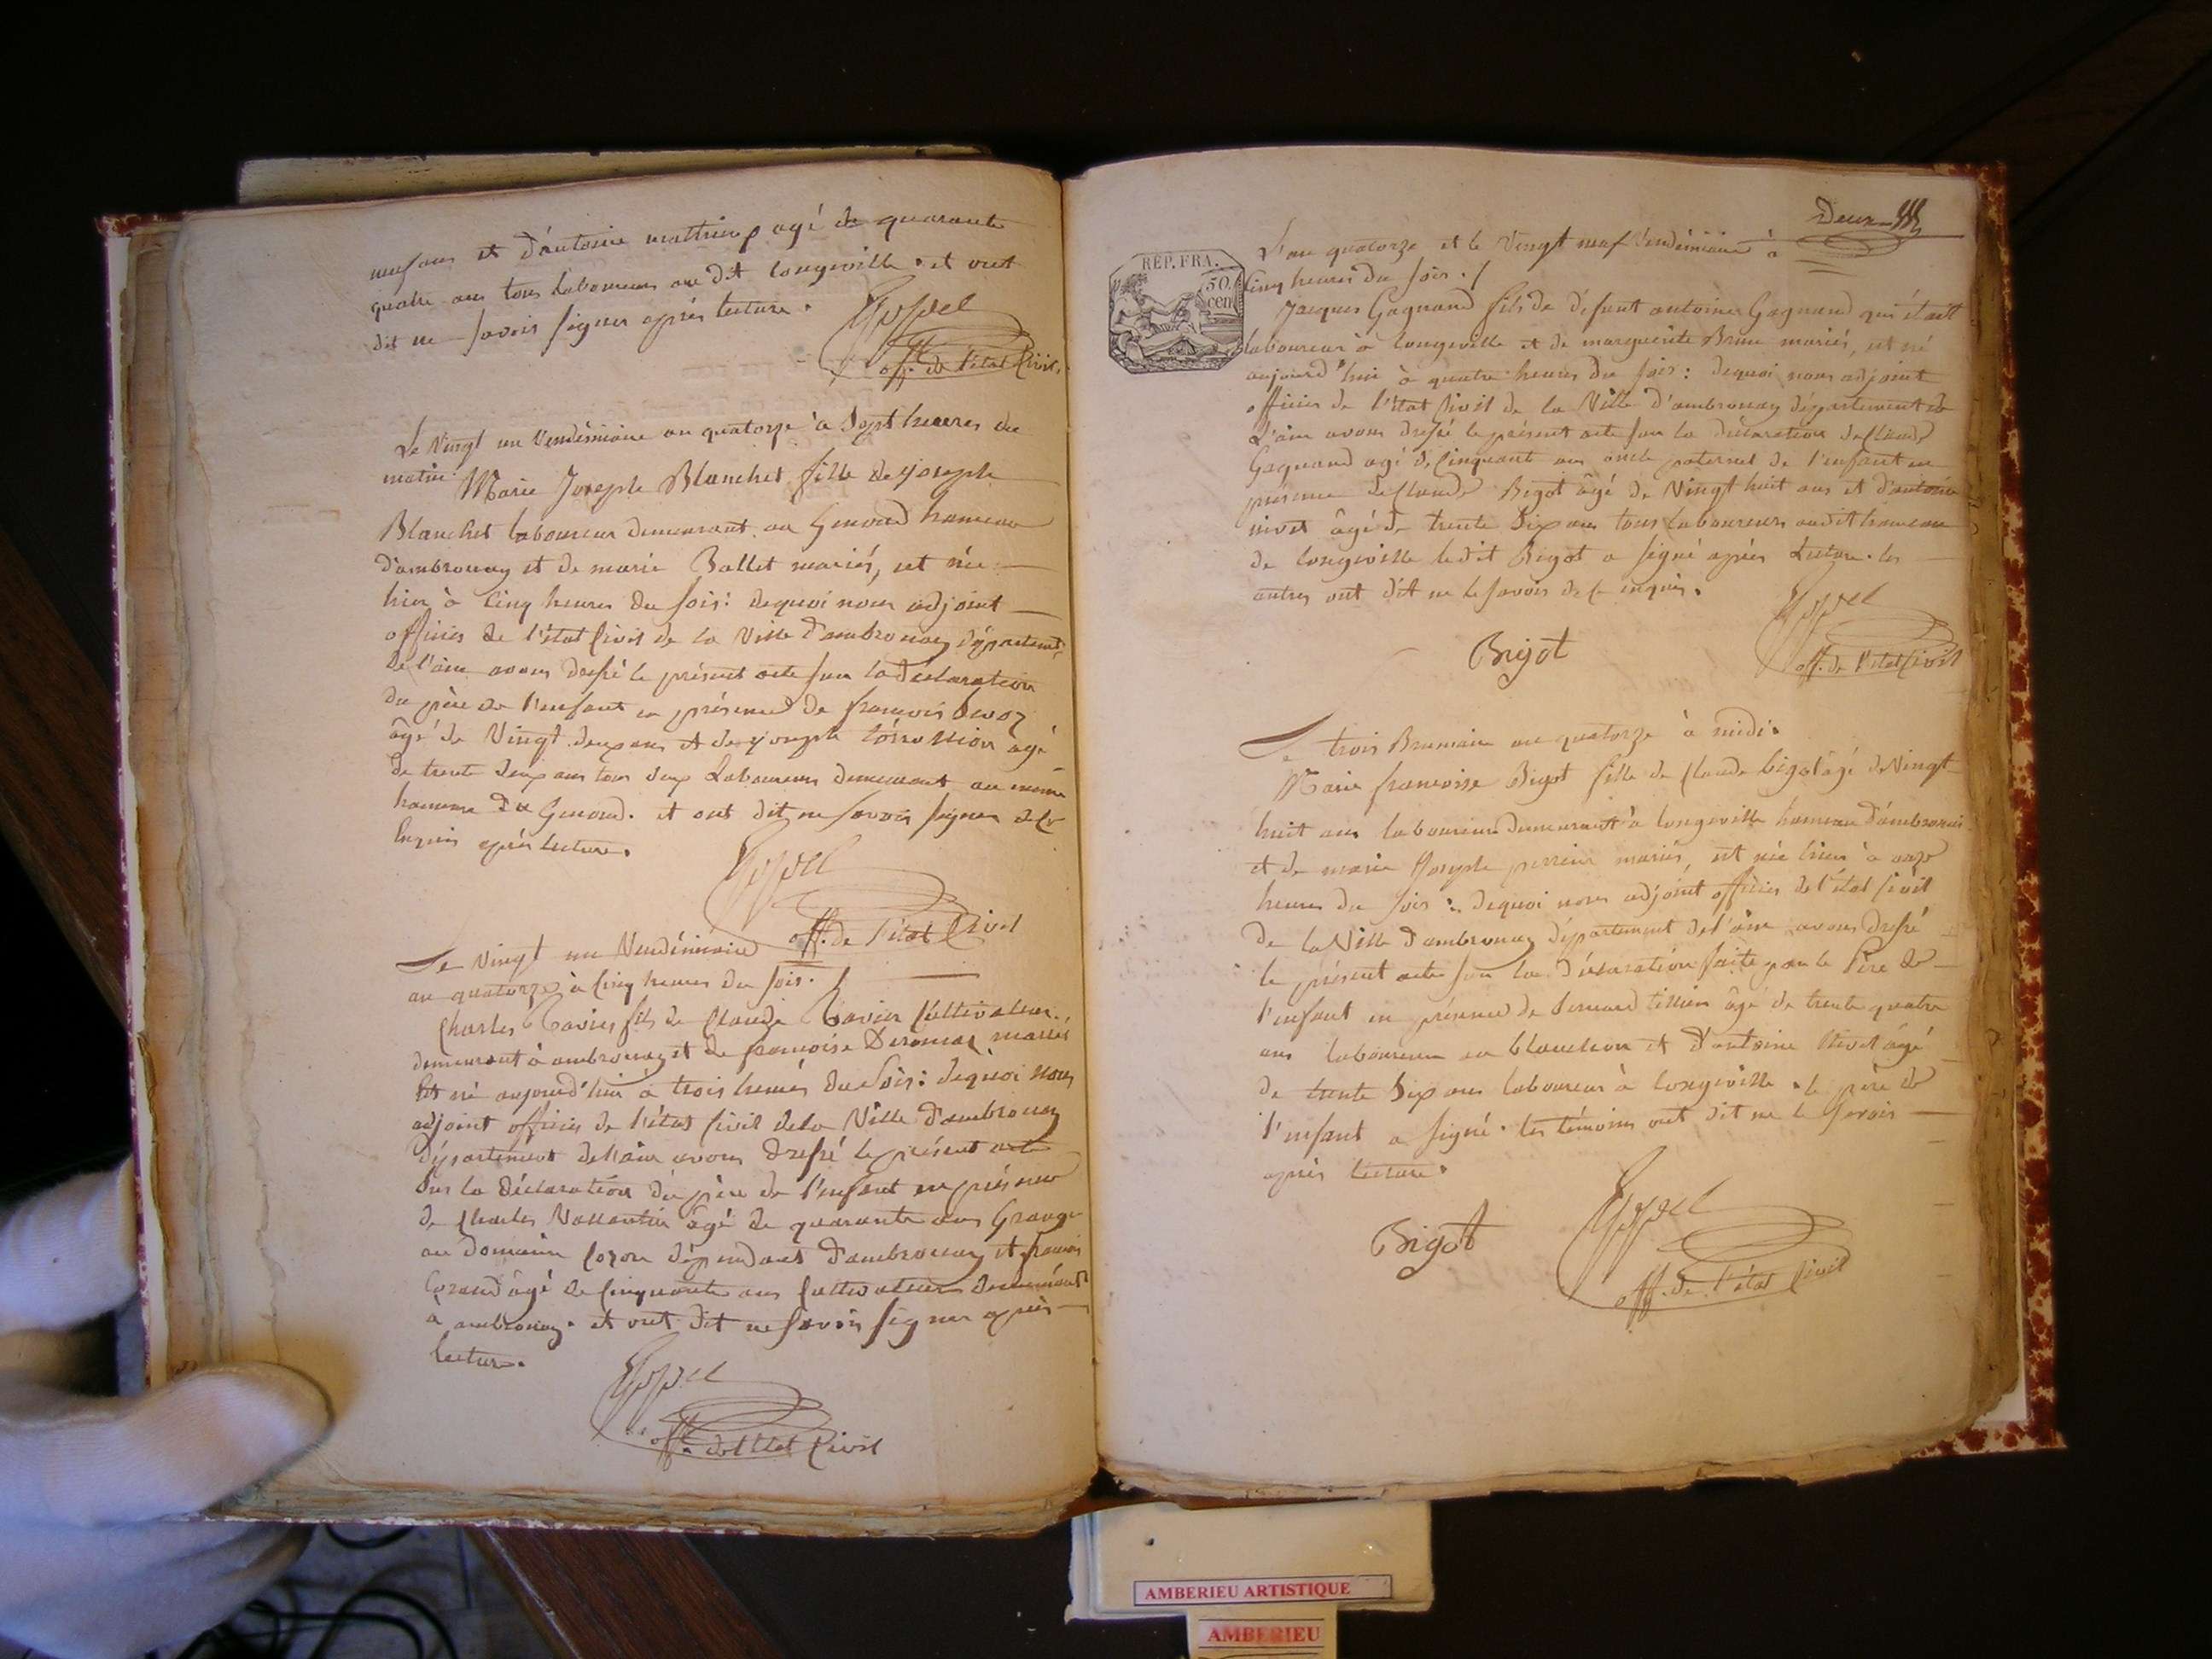 neuf ans et d'antoine mathieu agé de quarante
quatre ans tous laboureurs au dit longeville. et ont
dit ne savoir signer après lecture.
off. de l'état Civil.
Le Vingt un Vendémiaire an quatorze à Sept heures du
matin
Marie Joseph Blanchet fille de joseph
Blanchet laboureur demeurant au Genoud hameau
d'ambronay et de marie Ballet mariés, est née
hier à Cinq heures du soir: dequoi nous adjoint
officier de l'état Civil de la Ville d'ambronay départemt.
de l'ain avons dressé le présent acte sur la déclaration
du père de l'enfant en présence de françois
âgé de Vingt deux ans et de joseph âgé
de trente deux ans tous deux Laboureurs demeurant au même
hameau du Genoud. et ont dit ne savoir signer de ce
Enquis après lecture.
off. de l'état Civil
Le Vingt un Vendémiaire
an quatorze à Cinq heures du soir.
Charles Tavier fils de Claude Tavier Cultivateur
demeurant à ambronay et de françoise mariés
Est né aujourd'hui à trois heures du Soir: dequoi nous
adjoint officier de l'état Civil de la Ville d'ambronay
département de l'ain avons dressé le présent acte
Sur la déclaration du père de l'enfant en présence
de Charles âgé de quarante ans Granger
au domaine dépendant d'ambronay et françois
âgé de Cinquante ans Cultivateur demeurant
à ambronay. et ont dit ne savoir signer après
lecture.
off. de l'état Civil
Deux
REP. FRA.
50.
cen
L'an quatorze et le Vingt neuf Vendémiaire à
Cinq heures du soir.
Jacques Gagnand fils de défunt antoine Gagnand qui était
laboureur à longeville et de marguerite Brun mariés, est né
aujourd'hui à quatre heures du soir: dequoi nous adjoint
officier de l'état Civil de la Ville d'ambronay département de
L'ain avons dressé le présent acte sur la déclaration de Claude
Gagnand agé de Cinquante ans oncle paternel de l'enfant en
présence de Claude Bigot âgé de Vingt huit ans et d'antoine
nivet âgé de trente Six ans tous laboureurs audit hameau
de longeville ledit Bigot a signé après Lecture. les
autres ont dit ne le savoir de ce enquis.
Bigot
off. de l'état Civil
Le trois Brumaire an quatorze à midi.
Marie françoise Bigot fille de Claude bigot âgé de Vingt
huit ans laboureur demeurant à longeville hameau d'ambronay
et de marie Joseph perrein mariés, est née hier à onze
heures du soir: dequoi nous adjoint officier de l'état Civil
de la Ville d'ambronay département de l'ain avons dressé
le présent acte sur la déclaration faite par le Père de
l'enfant en présence de bernard âgé de trente quatre
ans laboureur au blanchon et d'antoine Nivet âgé
de trente Six ans laboureur à longeville. le père de
l'enfant a signé. les témoins ont dit ne le Savoir
après lecture.
Bigot
off. de l'état Civil
AMBERIEU ARTISTIQUE
AMBERIEU